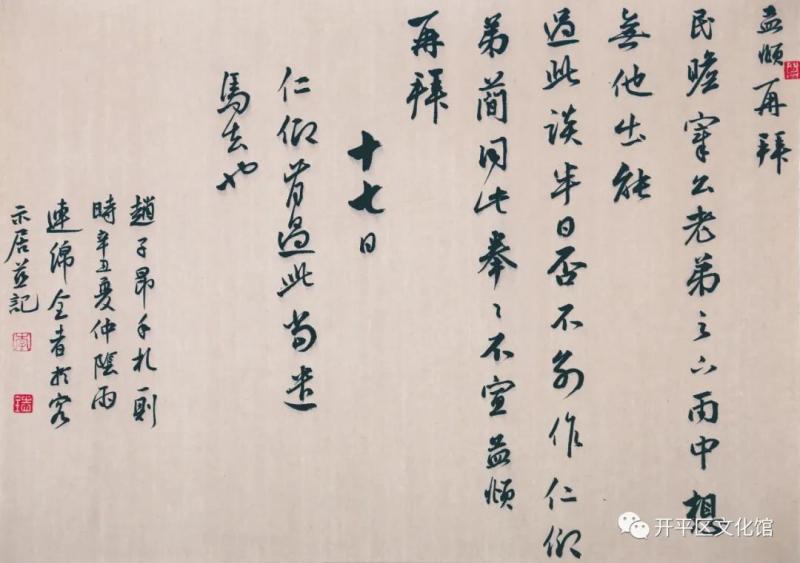 孟頫再拜
民瞻宰公老弟足下雨中想
無他出能
過此談半日否不別作仁仰
弟簡同此拳拳不宣孟頫
再拜
十七日
仁仰肯過此當遣
馬去也
趙子昂手札一則
時辛丑夏仲陰雨
連綿 者於
示居並記
开平区文化馆